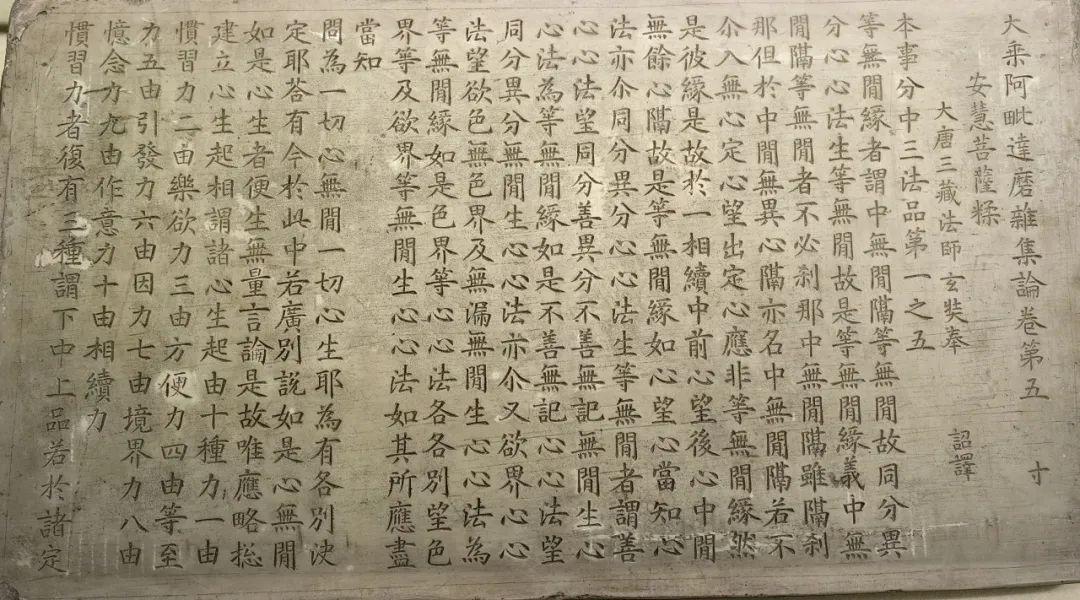 大乗阿毗達磨雜集論卷第五 寸
安慧菩薩糅
大唐三藏法師玄奘奉 詔譯
本事分中三法品第一之五
等無閒緣者謂中無閒隔等無閒故同分異
分心心法生等無閒故是等無閒緣義中無
閒隔等無閒者不必刹那中無閒隔雖隔刹
那但於中閒無異心隔亦名中無閒隔若不
尒入無心定心望出定心應非等無閒緣然
是彼緣是故於一相續中前心望後心中閒
無餘心隔故是等無閒緣如心望心當知心
法亦尒同分異分心心法生等無閒者謂善
心心法望同分善異分不善無記無閒生心
心法為等無閒緣如是不善無記心心法望
同分異分無閒生心心法亦尒又欲界心心
法望欲色無色界及無漏無閒生心心法為
等無閒緣如是色界等心心法各各別望色
界等及欲界等無閒生心心法如其所應盡
當知
問為一切心無閒一切心生耶為有各別決
定耶荅有今於此中若廣別說如是心無閒
如是心生者便生無量言論是故唯應略揔
建立心生起相謂諸心生起由十種力一由
慣習力二由樂欲力三由方便力四由等至
力五由引發力六由因力七由境界力八由
憶念力九由作意力十由相續力
慣習力者復有三種謂下中上品若於諸定